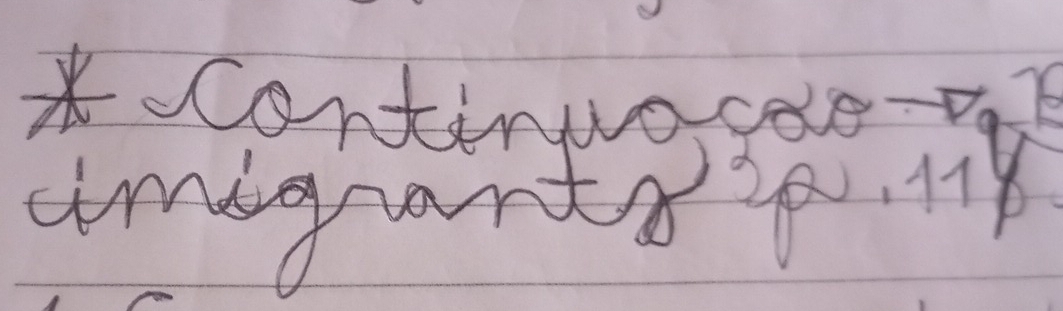 * Continuacao →
imigrants p. 118